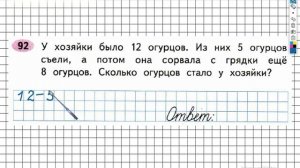 92 У хозяйки было 12 огурцов. Из них 5 огурцов
съели, а потом она сорвала с грядки ещё
8 огурцов. Сколько огурцов стало у хозяйки?
12-5
Ответ: